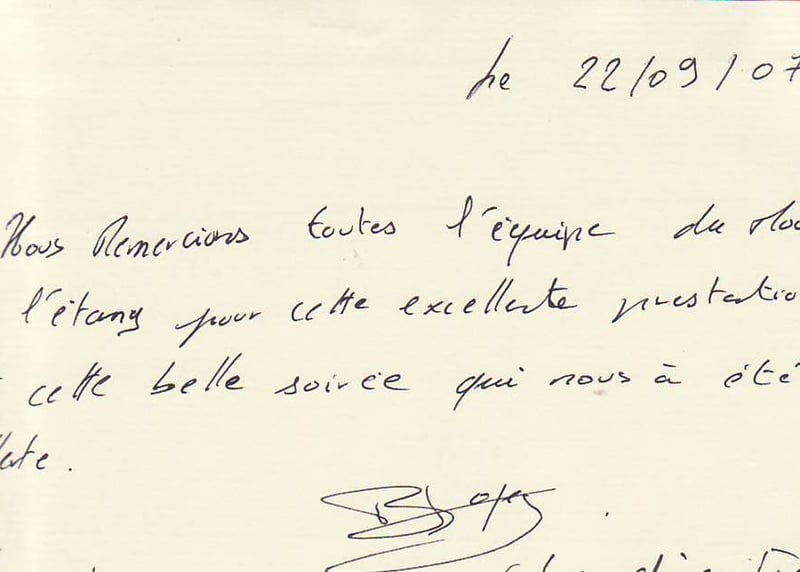 Le 22/09/07
Nous Remercions toutes l'équipe du
l'étang pour cette excellente prestation
cette belle soirée qui nous à été